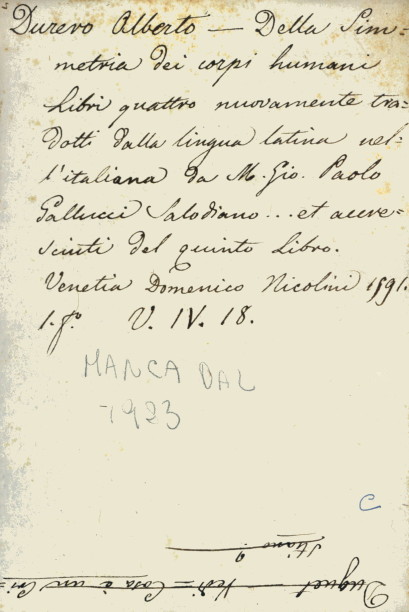 Durero Alberto — Della Sim=
metria dei corpi humani
Libri quattro nuovamente tra=
dotti dalla lingua latina nel=
l'italiana da M. Gio. Paolo
Gallucci Salodiano... et accre=
sciuti del quinto Libro.
Venetia Domenico Nicolini 1591.
1. fo. V. IV. 18.
MANCA DAL
1923
C
Duguet Vedi = Cosa è un Cri=
stiano?